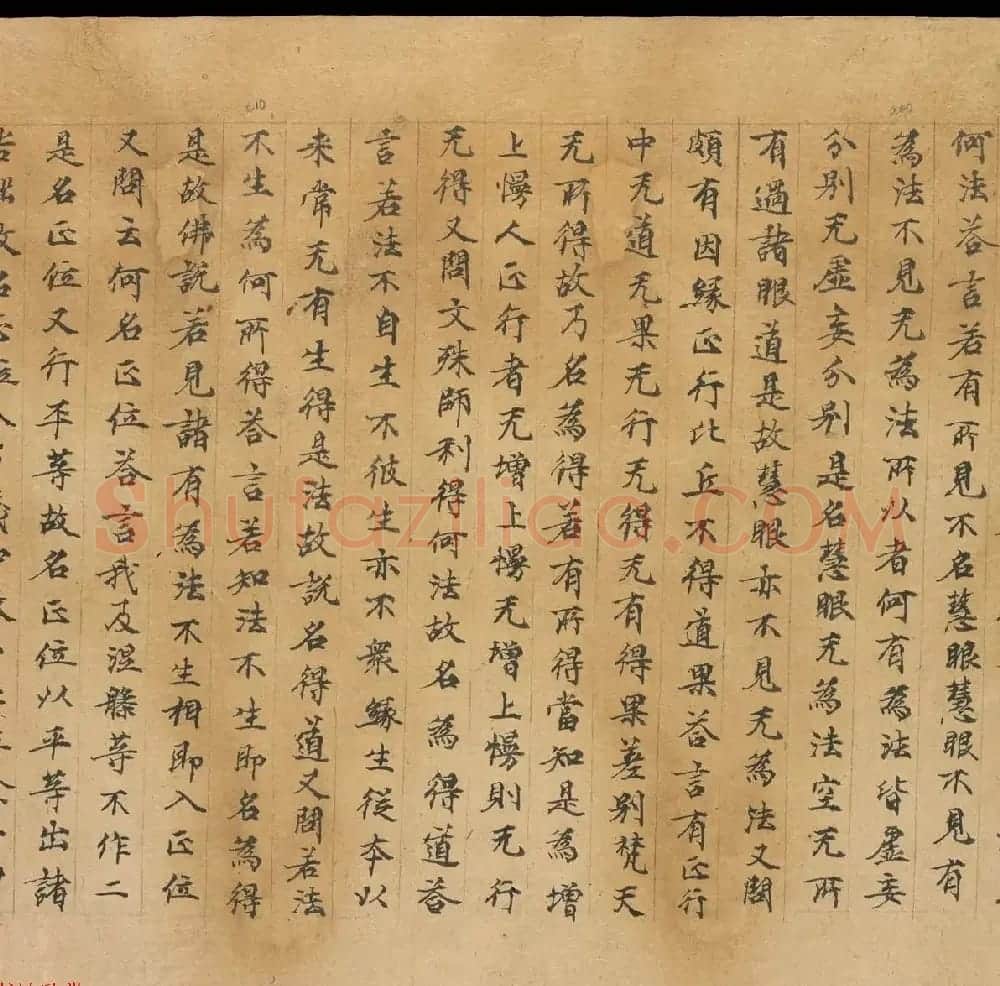 何法荅言若有所見不名慧眼慧眼不見有
為法不見无為法所以者何有為法皆虛妄
分別无虛妄分別是名慧眼无為法空无所
有過諸眼道是故慧眼亦不見无為法又問
頗有因緣正行比丘不得道果荅言有正行
中无道无果无行无得无有得果差別梵天
无所得故乃名為得若有所得當知是為增
上慢人正行者无增上慢无增上慢則无行
无得又問文殊師利得何法故名為得道荅
言若法不自生不彼生亦不衆緣生從本以
来常无有生得是法故說名得道又問若法
不生為何所得荅言若知法不生即名為得
是故佛說若見諸有為法不生相即入正位
又問云何名正位荅言我及涅槃等不作二
是名正位又行平等故名正位以平等出諸
苦惱故名正位入
Shufaziliao.COM
210